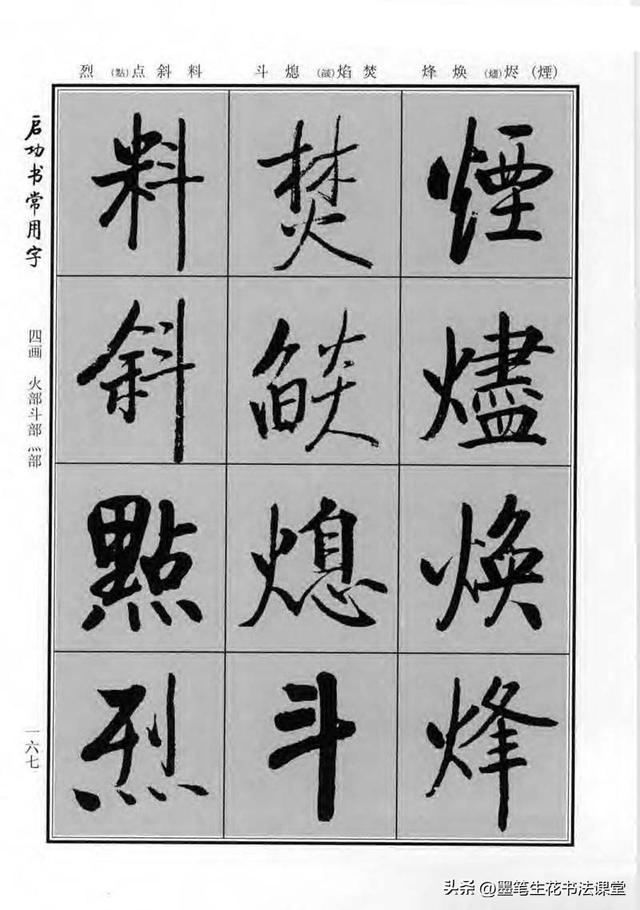 烈(點)点斜料 斗熄(燄)焰焚 烽焕(燼)烬(煙)
启功书常用字
四画 火部斗部灬部
一六七
煙
燼
焕
烽
焚
燄
熄
斗
料
斜
點
烈
头条@墨笔生花书法课堂